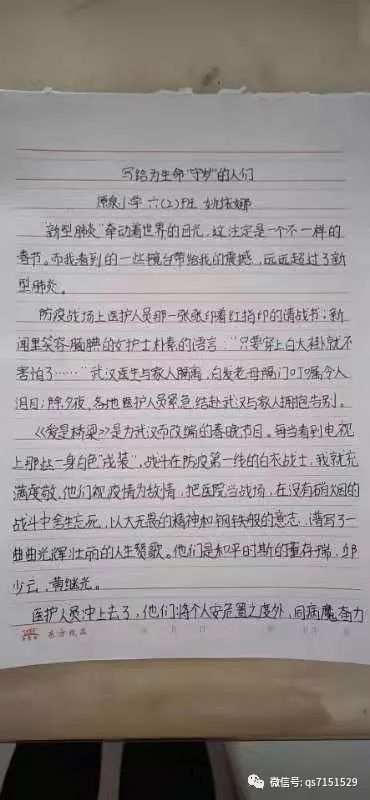 写给为生命"守护"的人们
小学 六(2)班 姚依娜
"新型肺炎"牵动着世界的目光，这注定是一个不一样的
春节。而我看到的一些镜头带给我的震撼，远远超过了新
型肺炎。
防疫战场上医护人员那一张张印着红指印的请战书；新
闻里笑容腼腆的女护士朴素的语言："只要穿上白大褂就不
害怕了……"武汉医生与家人隔离，白发老母隔门叮嘱令人
泪目；除夕夜，各地医护人员紧急结赴武汉与家人拥抱告别。
《爱是桥梁》是为武汉而改编的春晚节目。每当看到电视
上那些一身白色"戎装"，战斗在防疫第一线的白衣战士，我就充
满度敬，他们视疫情为敌情，把医院当战场，在没有硝烟的
战斗中舍生忘死，以大无畏的精神和钢铁般的意志，谱写了一
曲曲光辉壮丽的人生赞歌。他们是和平时期的董存瑞，邱
少云，黄继光。
医护人员冲上去了，他们将个人安危置之度外，同病魔奋力
东方纸品 年 月 日
微信号: qs7151529